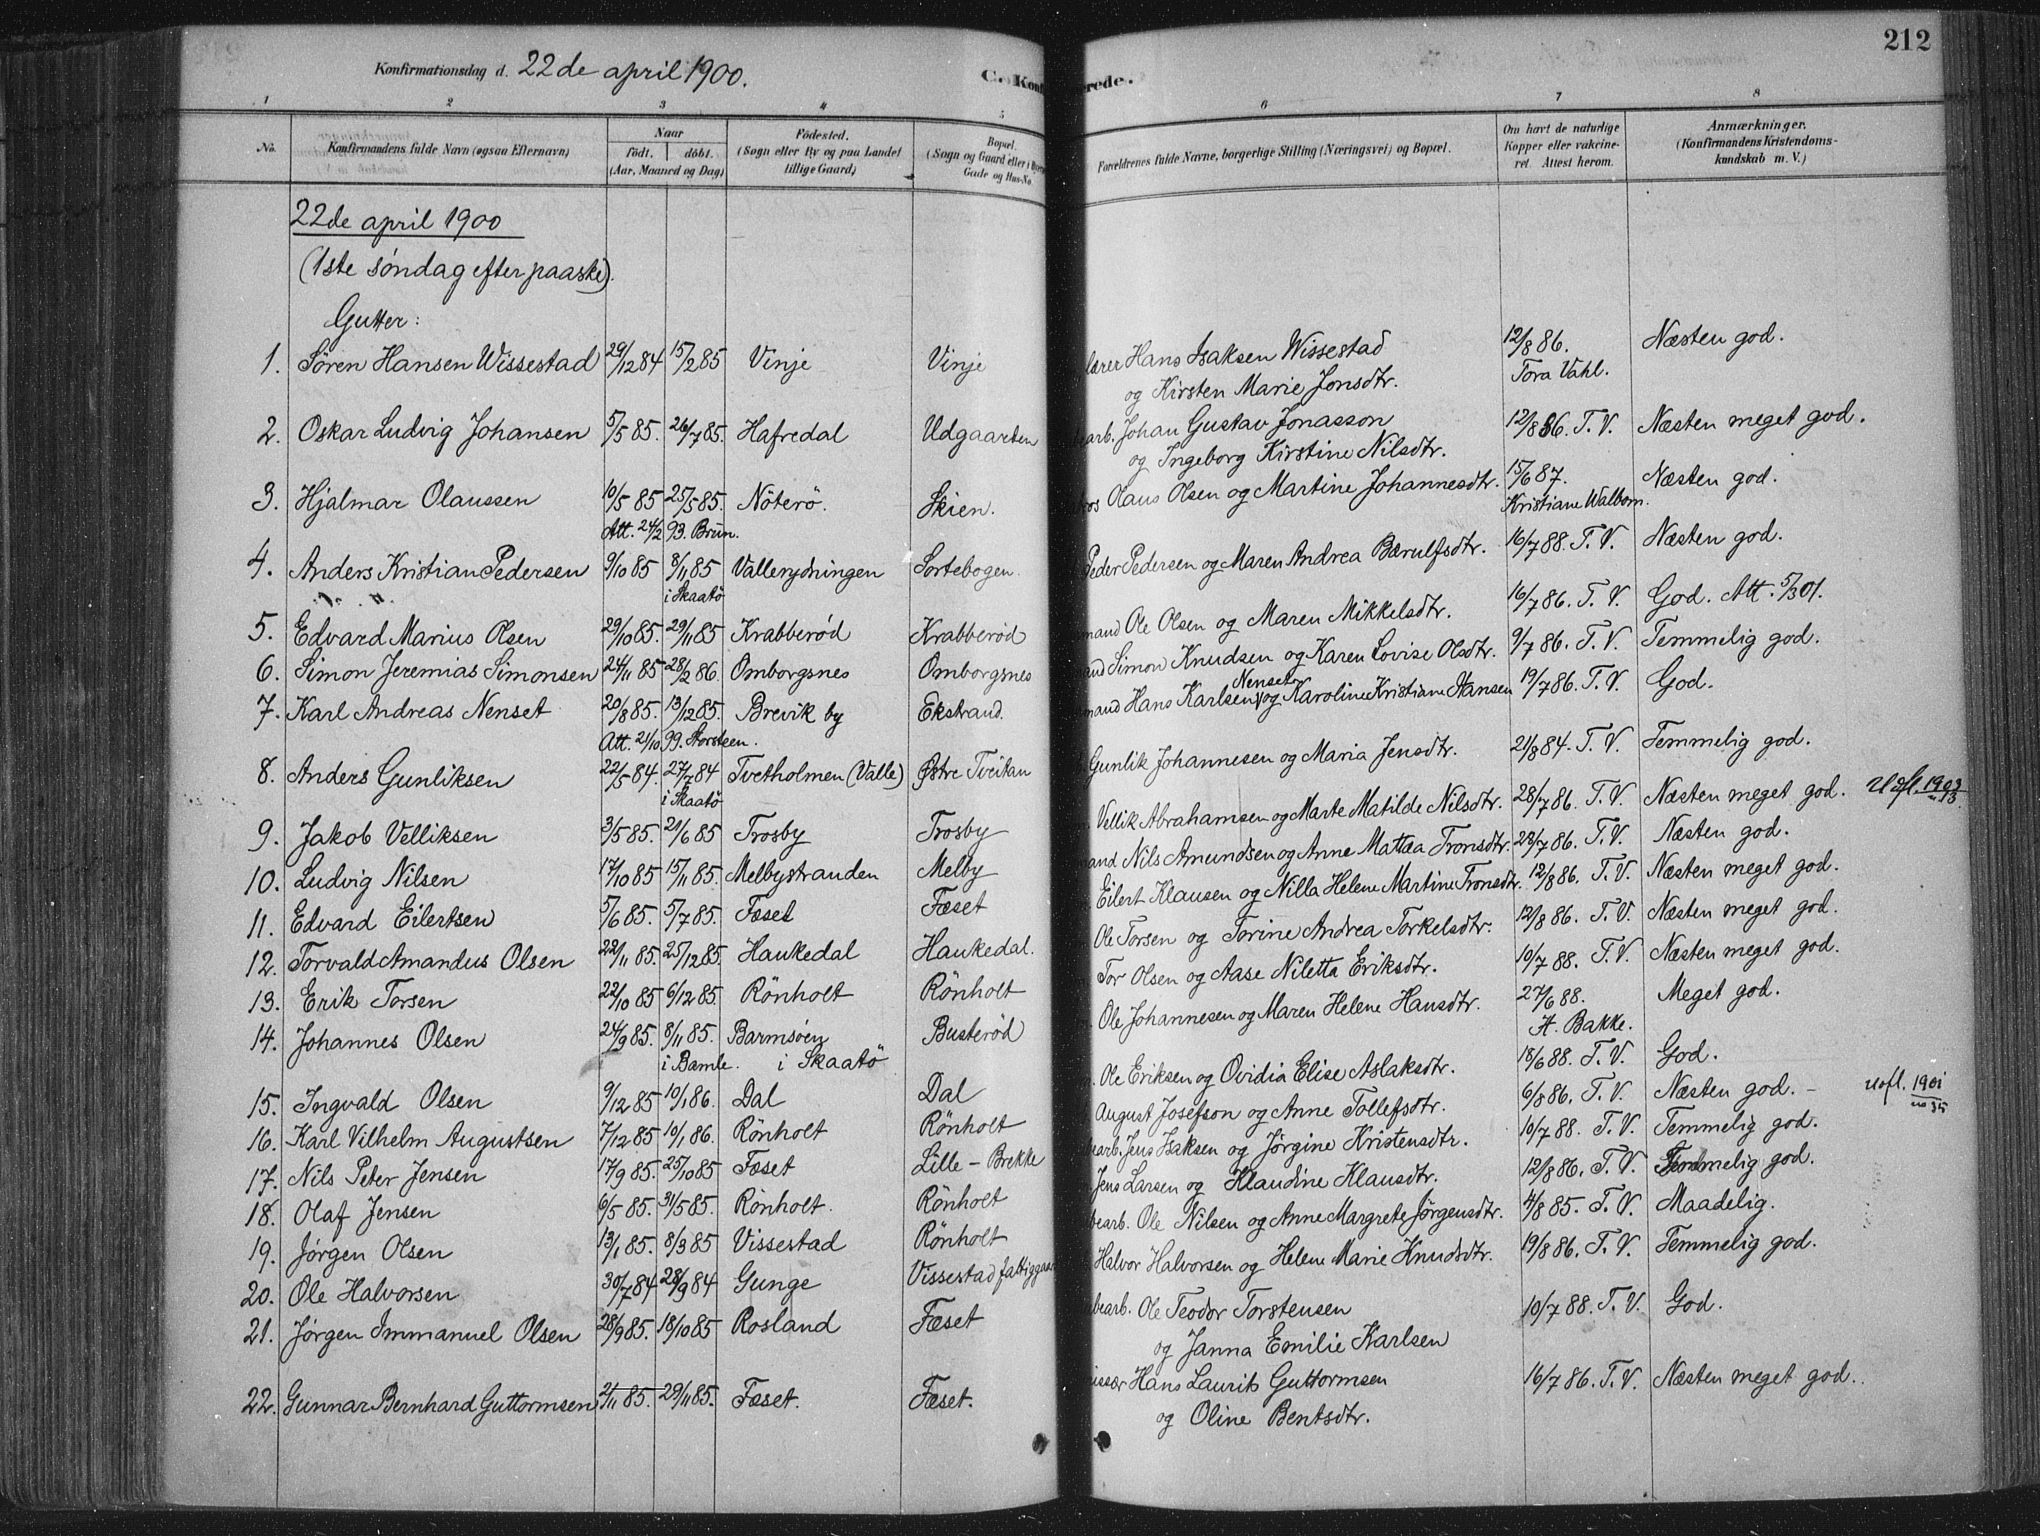 212
Konfirmationsdag d. 22de april 1900.
C. Konf
rede.
1 2 3 4 5 6 7 8
No. Konfirmandens fulde Navn (ogsaa Efternavn) Naar født. døbt. (Aar, Maaned og Dag) Fødested. (Sogn eller By og paa Landet tillige Gaard) Bopæl. (Sogn og Gaard eller i Gade og Hus-No. Forældrenes fulde Navne, borgerlige Stilling (Næringsvei) og Bopæl. Om havt de naturlige Kopper eller vakcineret. Attest herom. Anmærkninger. (Konfirmandens Kristendomskundskab m. V.)
22de april 1900
(1ste søndag efter paaske).
Gutter:
1. Søren Hansen Wissestad 29/12 84 15/2 85 Vinje Vinje Hans Isaksen Wissestad 12/8 86. Næsten god.
og Kirsten Marie Jonsdtr. Tora Vahl.
2. Oskar Ludvig Johansen 5/5 85. 26/7 85. Hafredal Udgaarten arb. Johan Gustav Jonasson 12/8 86. T. V. Næsten meget god.
og Ingeborg Kirstine Nilsdtr.
3. Hjalmar Olaussen 10/5 85 25/5 85. Nöterö. Skien. Olaus Olsen og Martine Johannesdtr. 15/6 87. Næsten god.
Att. 24/2 93. Brun. Kristiane Walbom.
4. Anders Kristian Pedersen 9/10 85 8/11 85 Vallerydningen Sortebogen. Peder Pedersen og Maren Andrea Bærulfsdtr. 16/7 88. T. V. Næsten god.
i Skaatö
5. Edvard Marius Olsen 29/10 85. 29/11 85 Krabberød Krabberød mand Ole Olsen og Maren Mikkelsdtr. 16/7 86. T. V. God. Att. 5/3 01.
6. Simon Jeremias Simonsen 24/11 85 28/2 86. Omborgsnes Omborgsnes Simon Knudsen og Karen Lovise Olsdtr. 9/7 86. T. V. Temmelig god.
7. Karl Andreas Nenset 20/8 85. 13/12 85. Brevik by Ekstrand. mand Hans Karlsen Nenset og Karoline Kristiane Hansen 19/7 86. T. V. God.
Att. 21/10 99. Storstsen.
8. Anders Gunliksen 22/5 84. 27/7 84 Tvetholmen (Valle) Østre Tveitan Gunlik Johannesen og Maria Jensdtr. 21/8 84. T. V. Temmelig god.
i Skaatö
9. Jakob Velliksen 3/5 85. 21/6 85 Trosby Trosby Vellik Abrahamsen og Marte Matilde Nilsdtr. 28/7 86. T. V. Næsten meget god. Uofl. 1903 no 13.
10. Ludvig Nilsen 17/10 85 15/11 85. Melbystranden Melby mand Nils Amundsen og Anne Mattea Tronsdtr. 28/7 86. T. V. Næsten god.
11. Edvard Eilertsen 5/6 85. 5/7 85. Fæset Fæset Eilert Klausen og Nilla Helene Martine Tronsdtr. 12/8 86. T. V. Næsten meget god.
12. Torvald Amandus Olsen 22/11 85. 25/12 85. Haukedal Haukedal. Ole Torsen og Torine Andrea Torkelsdtr. 12/8 86. T. V. Næsten meget god.
13. Erik Torsen 22/10 85 6/12 85 Rönholt Rönholt Tor Olsen og Aase Niletta Eriksdtr. 19/7 88. T. V. Næsten meget god.
14. Johannes Olsen 24/9 85. 8/11 85. Barmsøen Busterød Ole Johannesen og Maren Helene Hansdtr. 27/6 88. Meget god.
i Bamle. i Skaatö H. Bakke.
15. Ingvald Olsen 9/12 85 10/1 86. Dal Dal Ole Eriksen og Ovidia Elise Aslaksdtr. 18/6 88. T. V. God.
16. Karl Vilhelm Augustsen 7/12 85 10/1 86. Rönholt Rönholt August Josefson og Anne Tollefsdtr. 6/8 86. T. V. Næsten god. – uofl. 1901 no 35
17. Nils Peter Jensen 17/9 85. 25/10 85 Fæset Lille - Brekke arb. Jens Isaksen og Jørgine Kristensdtr. 10/7 88. T. V. Temmelig god.
18. Olaf Jensen 6/5 85. 31/5 85. Rönholt. Rönholt Jens Larsen og Klaudine Klausdtr. 12/8 86. T. V. Temmelig god.
19. Jørgen Olsen 13/1 85. 8/3 85 Vissestad Rönholt arb. Ole Nilsen og Anne Margrete Jørgensdtr. 4/8 85. T. V. Maadelig.
20. Ole Halvorsen 30/7 84 28/9 84 Gunge Vissestad fattiggaar Halvor Halvorsen og Helene Marie Knudsdtr. 19/8 86. T. V. Temmelig god.
21. Jørgen Immanuel Olsen 28/9 85. 18/10 85 Rosland Fæset arb. Ole Teodor Torstensen 10/7 88. T. V. God.
og Janna Emilie Karlsen
22. Gunnar Bernhard Guttormsen 2/11 85. 29/11 85. Fæset. Fæset. Hans Laurits Guttormsen 16/7 86. T. V. Næsten meget god.
og Oline Bentsdtr.